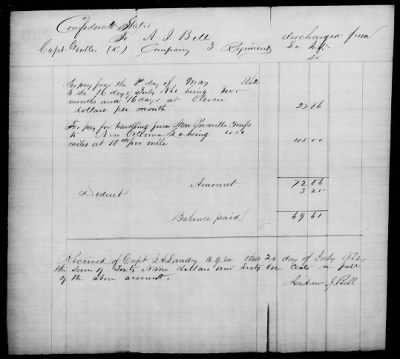 Confederate States
To A J Bell discharged from
Capt (K) Company 3 Regiment
For pay from the day of May 1862
to the 16 day of July 1862 being two
months and 16 days at Eleven
dollars per month
For pay for travelling from Miss
to New being
miles at 10 cts per mile
Amount 72 86
Deduct 3 25
Balance paid 69 61
Received of Capt Landry A.Q.M. this 20 day of July 1862
the sum of Sixty Nine dollars and Sixty One Cents in full
of the above account.
Andrew J. Bell